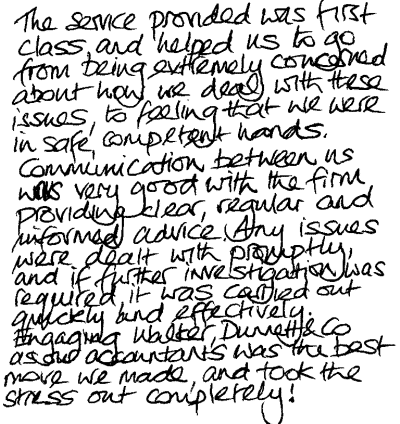 The service provided was first
class, and helped us to go
from being extremely concerned
about how we deal with these
issues, to feeling that we were
in safe, competent hands.
Communication between us
was very good with the firm
providing clear, regular and
informed advice. Any issues
were dealt with promptly,
and if further investigation was
required it was carried out
quickly and effectively.
Engaging Walter Dunnett & Co
as our accountants was the best
move we made, and took the
stress out completely!